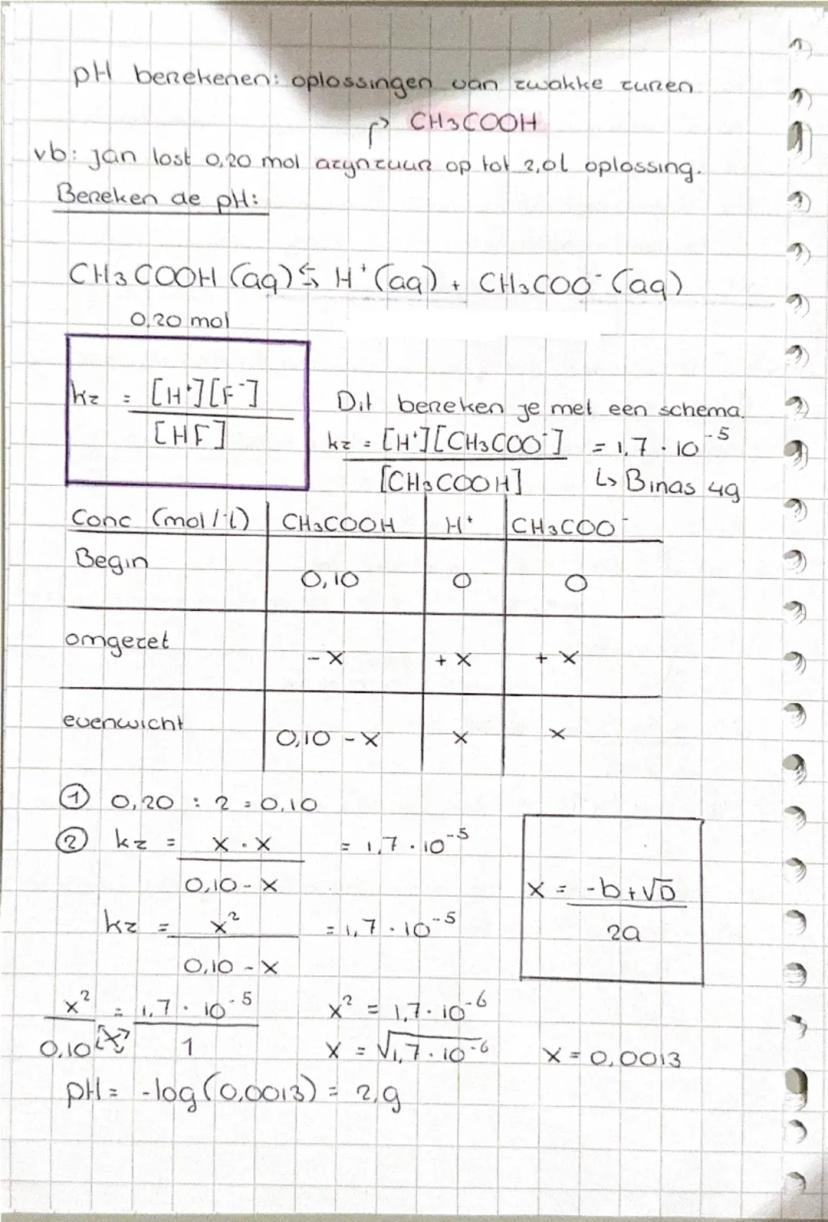 pH berekenen: oplossingen van zwakke zuren
↱ CH₃COOH
vb: jan lost 0,20 mol azynzuur op tot 2,0l oplossing.
Bereken de pH:
CH₃COOH (aq) ⇆ H⁺(aq) + CH₃COO⁻ (aq)
0,20 mol
kz = [H⁺][F⁻] / [HF]
Dit bereken je met een schema.
kz = [H⁺][CH₃COO⁻] / [CH₃COOH] = 1,7 · 10⁻⁵
↳ Binas 49
Conc (mol/l) CH₃COOH H⁺ CH₃COO⁻
Begin 0,10 0 0
omgezet -x +x +x
evenwicht 0,10 -x x x
① 0,20 : 2 = 0,10
② kz = x · x / 0,10 - x = 1,7 · 10⁻⁵
kz = x² / 0,10 - x = 1,7 · 10⁻⁵
x = -b+√D / 2a
x² / 0,10 [-x] = 1,7 · 10⁻⁵ / 1
x² = 1,7 · 10⁻⁶
x = √1,7 · 10⁻⁶ x = 0,0013
pH = -log(0,0013) = 2,9